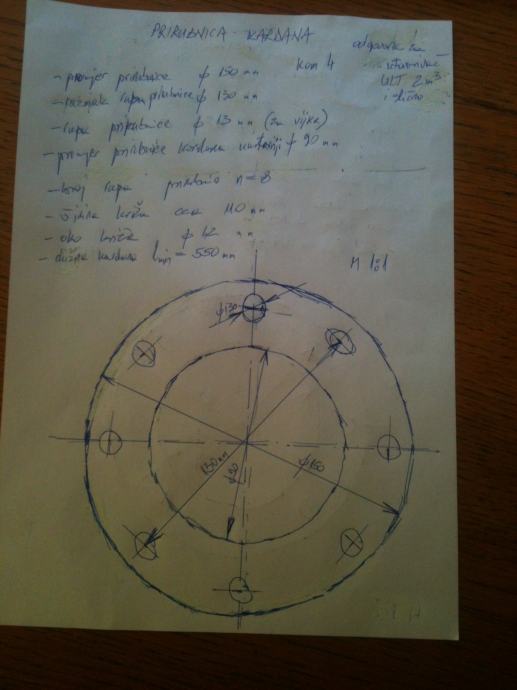 PRIRUBNICA KARDANA
odgovara za
kom 4
utovarivač
ULT 2 m³
i slično
- promjer prirubnice ϕ 150 mm
- razmak rupa prirubnice ϕ 130 mm
- rupa prirubnice ϕ 13 mm (za vijke)
- promjer prirubnice kardana unutarnji ϕ 90 mm
- broj rupa prirubnice n = 8
- širina križa cca 110 mm
- oko križa ϕ 42 mm
- dužina kardana lmin = 550 mm
M 1:1
ϕ130
130 mm
ϕ90
ϕ150